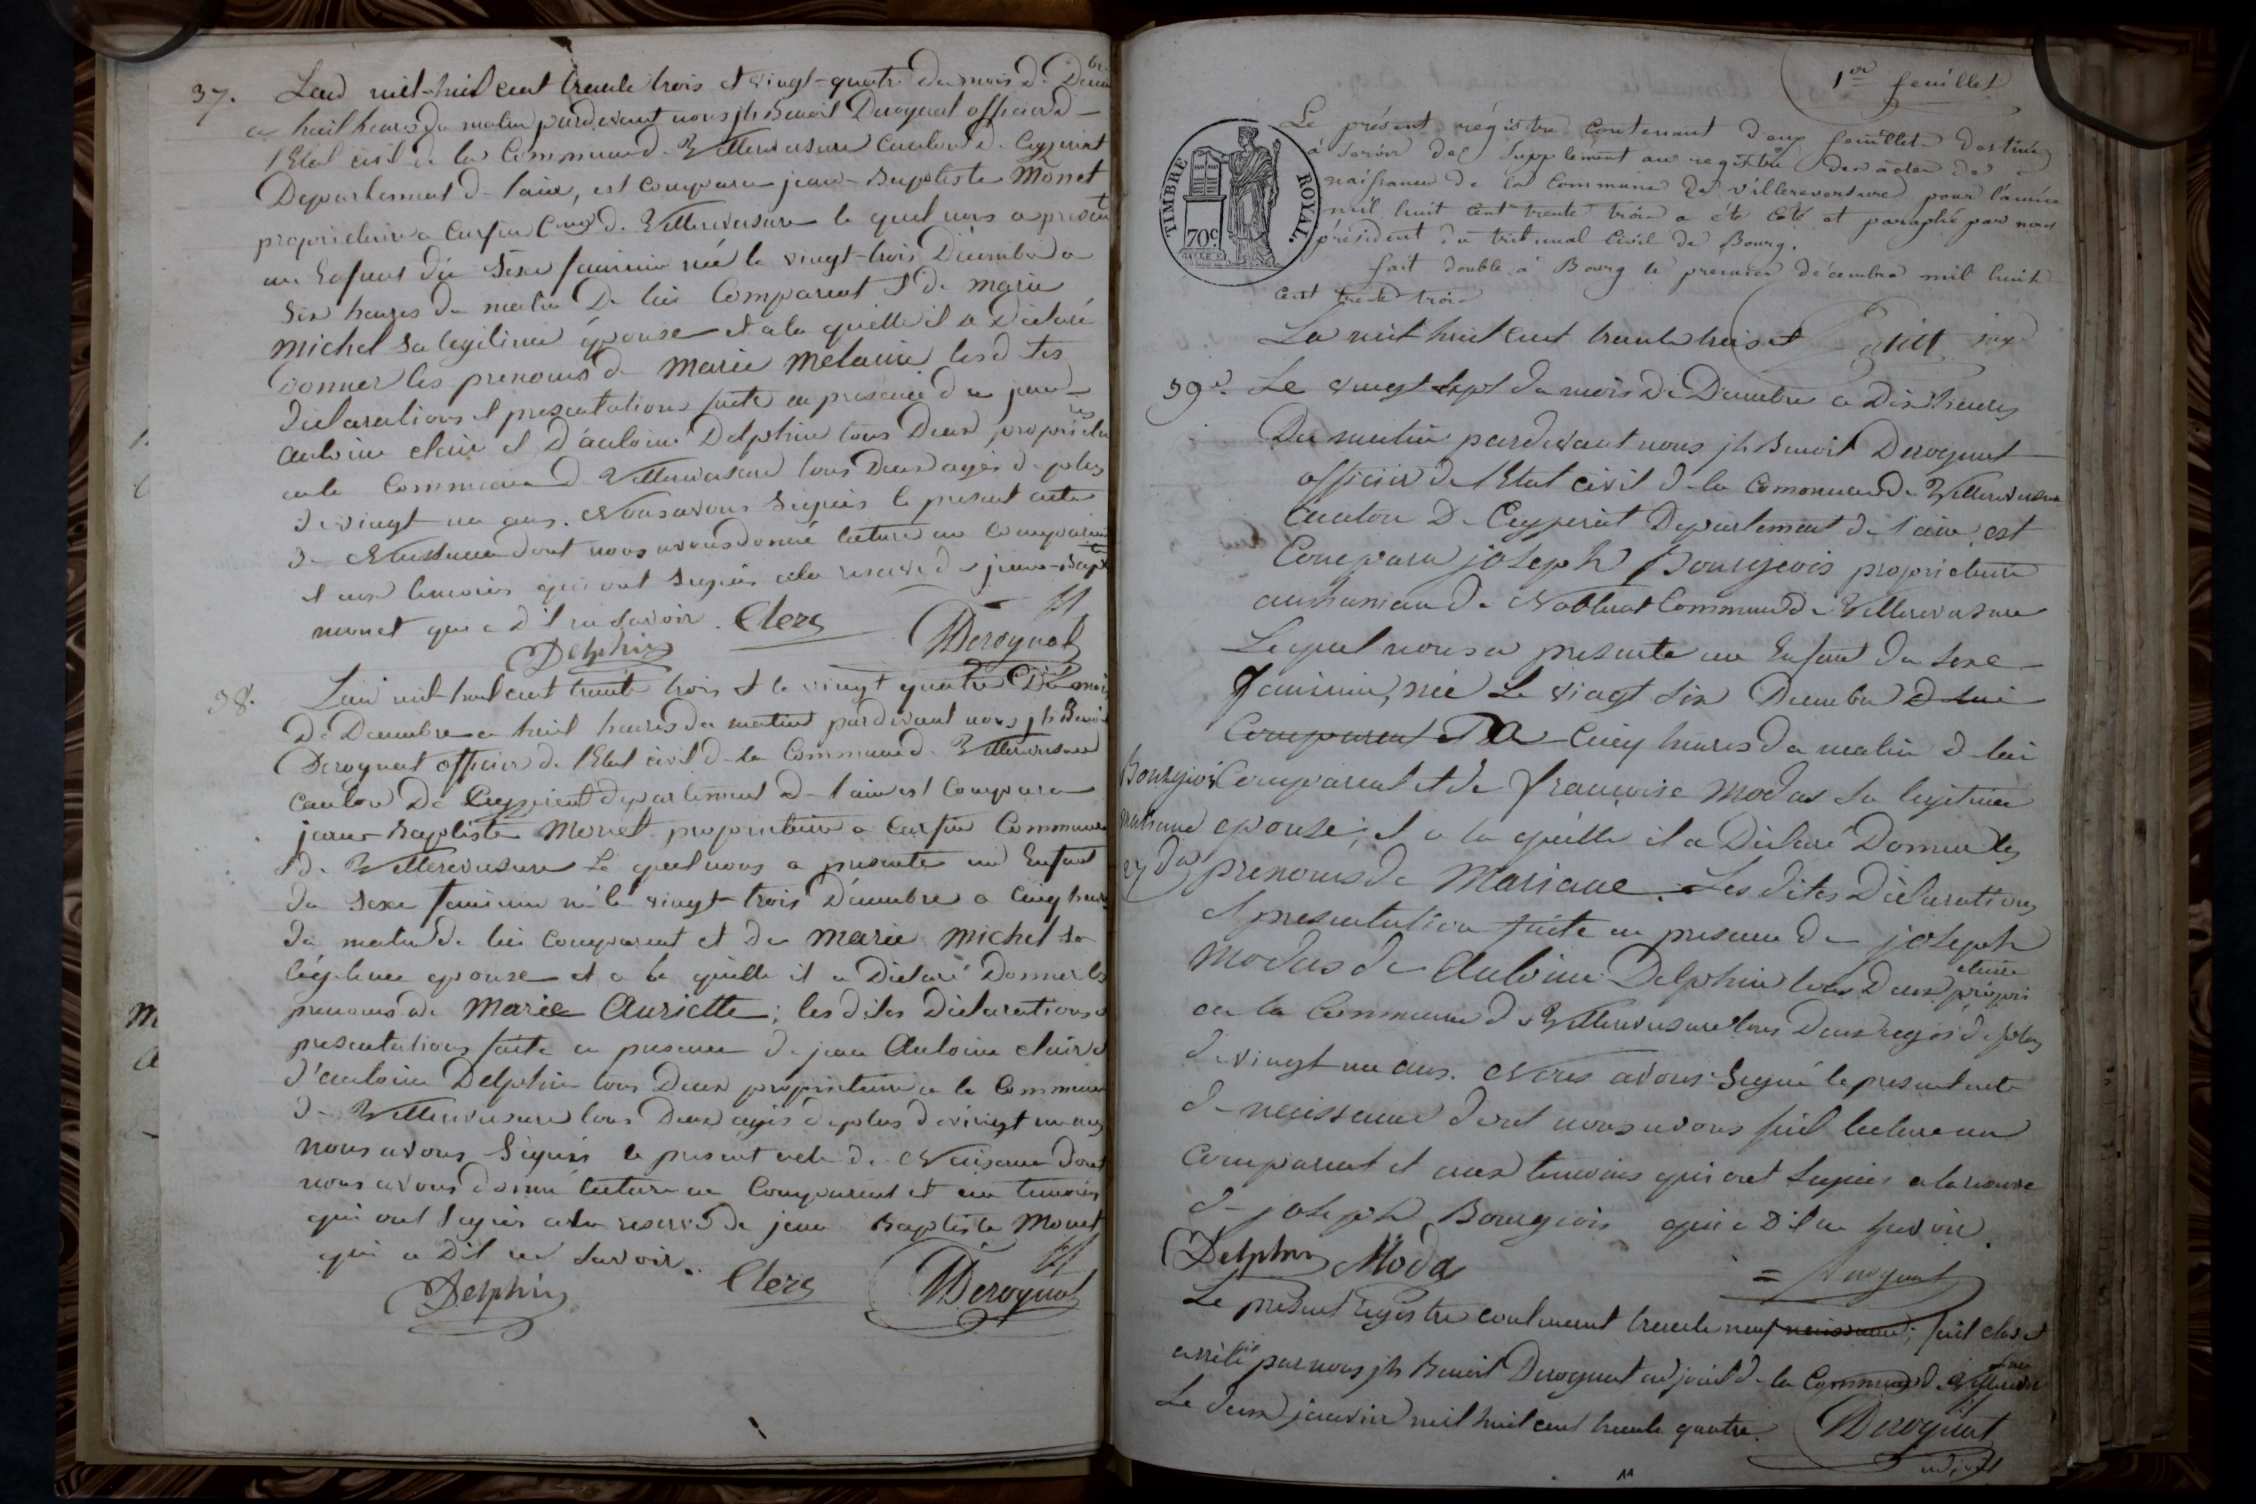 37. Lan mil-huit cent trente trois et vingt-quatre du mois de Decembre
a huit heures du matin pardevant nous jh Benoit Derognat officier de
l'Etat civil de la Commune de Villereversure Canton de Ceyzeriat
Departement de l'ain, est comparu jean-Baptiste Monet
proprietaire a Curfin Cne de Villereversure le quel nous a presenté
un Enfant du Sexe feminin né le vingt-trois Décembre a
Six heures du matin De lui Comparant & de marie
Michel Sa legitime épouse et a la quelle il a Déclaré
Donner les prenoms de Marie Melanie les dites
Déclarations et presentations faite en presence de jean
Antoine clair et D'antoine Delphin tous Deux proprietaires
en la Commune de Villereversure tous Deux agés de plus
de vingt un ans. Nous avons Signés le present acte
de Naissance dont nous avons donné lecture au Comparant
et aux temoins qui ont Signés a la reserve de jean-Bapte
monet qui a Dit ne Savoir. Clerc
Delphin Derognat
38. Lan mil-huit cent trente trois & le vingt quatre Du mois
De Decembre a huit heures du matin pardevant nous jh Benoit
Derognat officier de l'Etat civil de la Commune de Villereversure
canton De Ceyzeriat departement de l'ain est Comparu
jean-Baptiste Monet proprietaire a Curfin Commune
de Villereversure Le quel nous a presenté un Enfant
du Sexe feminin né le vingt-trois Décembre a Cinq heures
du matin de lui Comparant et de Marie Michel sa
légitime epouse et a la quelle il a Diclaré Donner les
prenoms de Marie Auriette; les dites Déclarations et
presentations faite en presence de jean Antoine clair et
d'antoine Delphin tous Deux proprietaire a la Commune
de Villereversure tous Deux agés de plus de vingt un ans
nous avons Signés le present acte de Naissance dont
nous avons donné lecture au Comparant et aux temoins
qui ont Signés a la reserve de jean Baptiste Monet
qui a Dit ne Savoir. Clerc
Delphin Derognat
1er feuillet
Le présent régistre contenant deux feuillets destiné
à servir de supplement au registre des actes de
naissances de la commune de Villereversure pour l'année
mil huit cent trente trois a été coté et paraphé par nous
président du tribunal Civil de Bourg.
fait double à Bourg le premier décembre mil huit
cent trente trois
TIMBRE ROYAL.
70c
La mil huit cent trente trois et
39e. Le vingt sept du mois De Decembre a Dix heures
Du matin pardevant nous jh Benoit Derognat
officier de l'Etat civil de la Commune de Villereversure
Canton De Ceyzeriat Departement de l'ain est
Comparu joseph Bourgeois proprietaire
au hameau de Noblens Commune de Villereversure
Lequel nous a presenté un Enfant du Sexe
feminin, née Le vingt Six Decembre de lui
Comparant et a Cinq heures du matin de lui
Comparant et de françoise Modas Sa legitime
epouse; et a la quelle il a Diclaré Donner les
prenoms de Mariane. Les dites Déclarations
Bourgeois
mariane
27 Dbre
& presentation faite en presence de joseph
Modas de Antoine Delphin tous Deux proprietaire
en la Commune de Villereversure tous Deux agés de plus
de vingt un ans. Nous avons Signé le present acte
de naissance dont nous avons fait lecture au
Comparant et aux temoins qui ont Signés a la reserve
de joseph Bourgeois qui a Dit ne Savoir.
Delphin Moda
= Derognat
Le present registre contenant trente neuf naissances; fait clos et
arrêté par nous jh Benoit Derognat adjoint de la Commune de Villereversure
Le deux janvier mil huit cent trente quatre. Derognat
adjoint